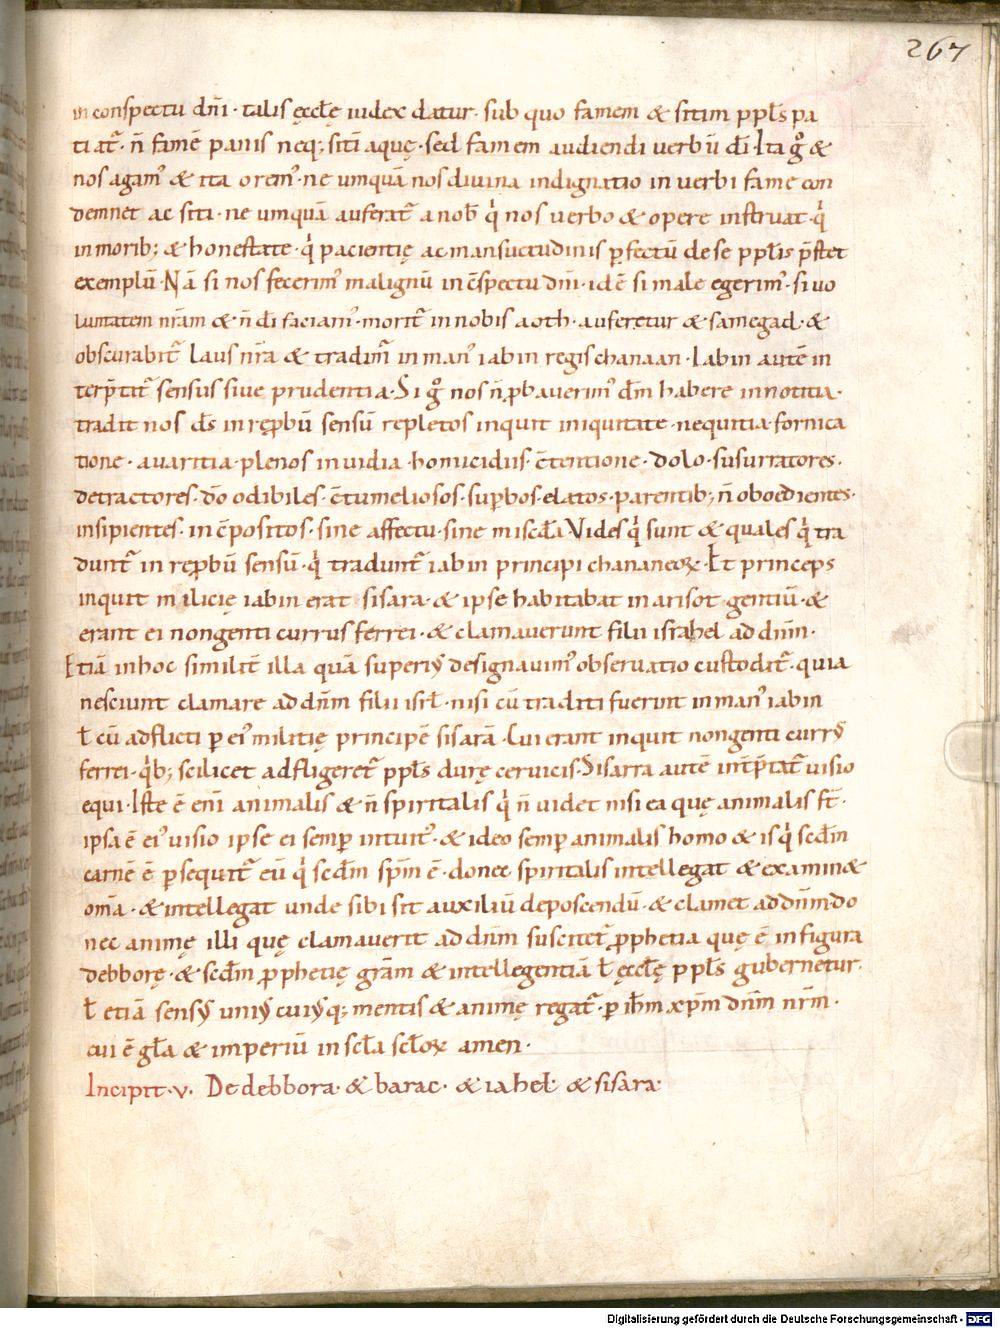 267
in conspectu dn̄i · talis ęcclę iudex datur · sub quo famem & sitim ppl̄s pa
tiat᷑ · n̄ famē panis neq; sitī aquę · sed famem audiendi verbū dī · Ita g̊ &
nos agam᷒ & ita orem᷒ · ne umquā nos divina indignatio in verbi fame con
demnet ac siti · ne umquā auferat᷑ a nob̄ q̇ nos verbo & opere instruat · q̇
in morib; & honestate · q̇ pacientię ac mansuetudinis ꝑfectū de se ppl̄is p̄stet
exemplū · Nā si nos fecerim᷒ malignū in c̄spectu dn̄i · id ē si male egerim᷒ · si vo
luntatem nr̄am & n̄ dī faciam᷒ · morit᷑ in nobis aoth · auferetur & samegad · &
obscurabit᷑ laus nr̄a & tradim᷑ in man᷒ iabin regis chanaan · Iabin autē in
terp̄tat᷑ sensus sive prudentia · Si g̊ nos n̄ ꝓbaverim᷒ dm̄ habere in notitia ·
tradit nos ds̄ in reꝓbū sensū repletos inquit iniquitate · nequitia · fornica
tione · avaritia · plenos invidia · homicidiis · c̄tentione · dolo · susurratores ·
detractores · dō odibiles · c̄tumeliosos · suꝑbos · elatos · parentib; n̄ oboedientes ·
insipientes · in c̄positos · sine affectu · sine miscdīa · Vides q̇ sunt & quales q̇ tra
dunt᷑ in reꝓbū sensū · q̇ tradunt᷑ iabin principi chananeoꝝ · Et princeps
inquit milicię iabin erat sisara · & ipse habitabat in arisot gentiū · &
erant ei nongenti currus ferrei · & clamaverunt filii israhel ad dn̄m ·
Etiā in hoc similit̄ illa quā superi᷒ designavim᷒ observatio custodit᷑ · quia
nesciunt clamare ad dn̄m filii isrl̄ · nisi cū traditi fuerunt in man᷒ iabin
ł cū adflicti ꝑ ei᷒ militię principē sisarā · Cui erant inquit nongenti curr᷒
ferrei · q̇b; scilicet adfligeret᷑ ppl̄s durę cervicis · Sisarra autē int̄p̄tat᷑ visio
equi · Iste ē enī animalis & n̄ spiritalis q̇ n̄ videt nisi ea quę animalis st̄ ·
ipsa ē ei᷒ visio ipse ei semꝑ intuit᷑ · & ideo semꝑ animalis homo & is q̇ scdm̄
carnē ē ꝑsequit᷑ eū q̇ scdm̄ spm̄ ē · donec spiritalis intellegat & examin&
om̄a · & intellegat unde sibi sit auxiliū deposcendū · & clamet ad dn̄m do
nec animę illi quę clamaverit ad dn̄m suscitet᷑ ꝓphetia quę ē in figura
debborę · & scdm̄ ꝓphetię grām & intellegentiā ł ęcclę ppl̄s gubernetur ·
ł etiā sens᷒ uni᷒cui᷒q; mentis & animę regat᷑ · ꝑ ihm̄ xpm̄ dn̄m nr̄m ·
cui ē gl̄a & imperiū in scl̄a scl̄oꝝ amen ·
Incipit · v · De debbora · & barac · & iahel · & sisara
Digitalisierung gefördert durch die Deutsche Forschungsgemeinschaft - DFG